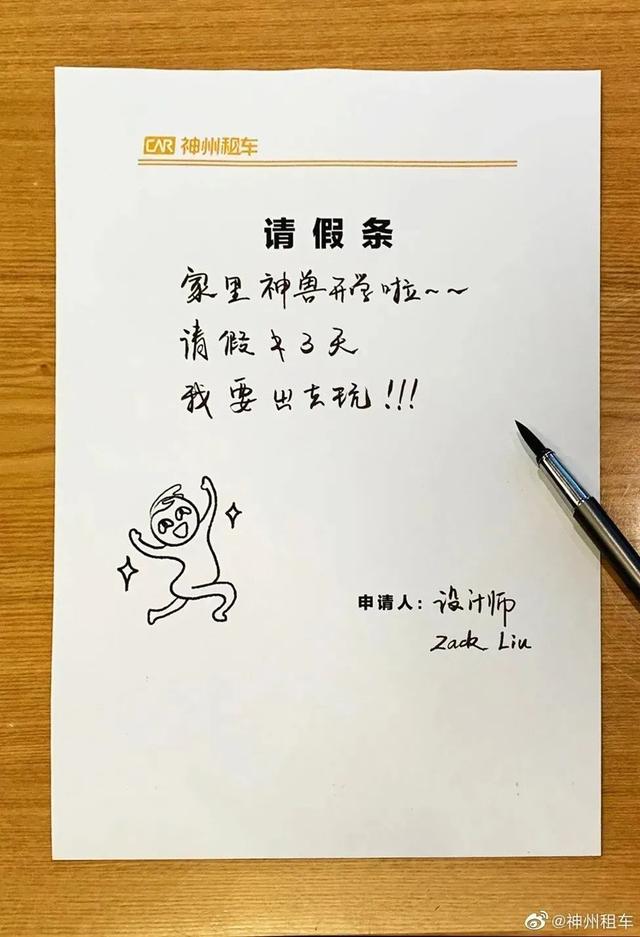 CAR 神州租车
请假条
家里神兽开学啦~~
请假 3天
我要出去玩!!!
申请人:设计师
Zack Liu
@神州租车